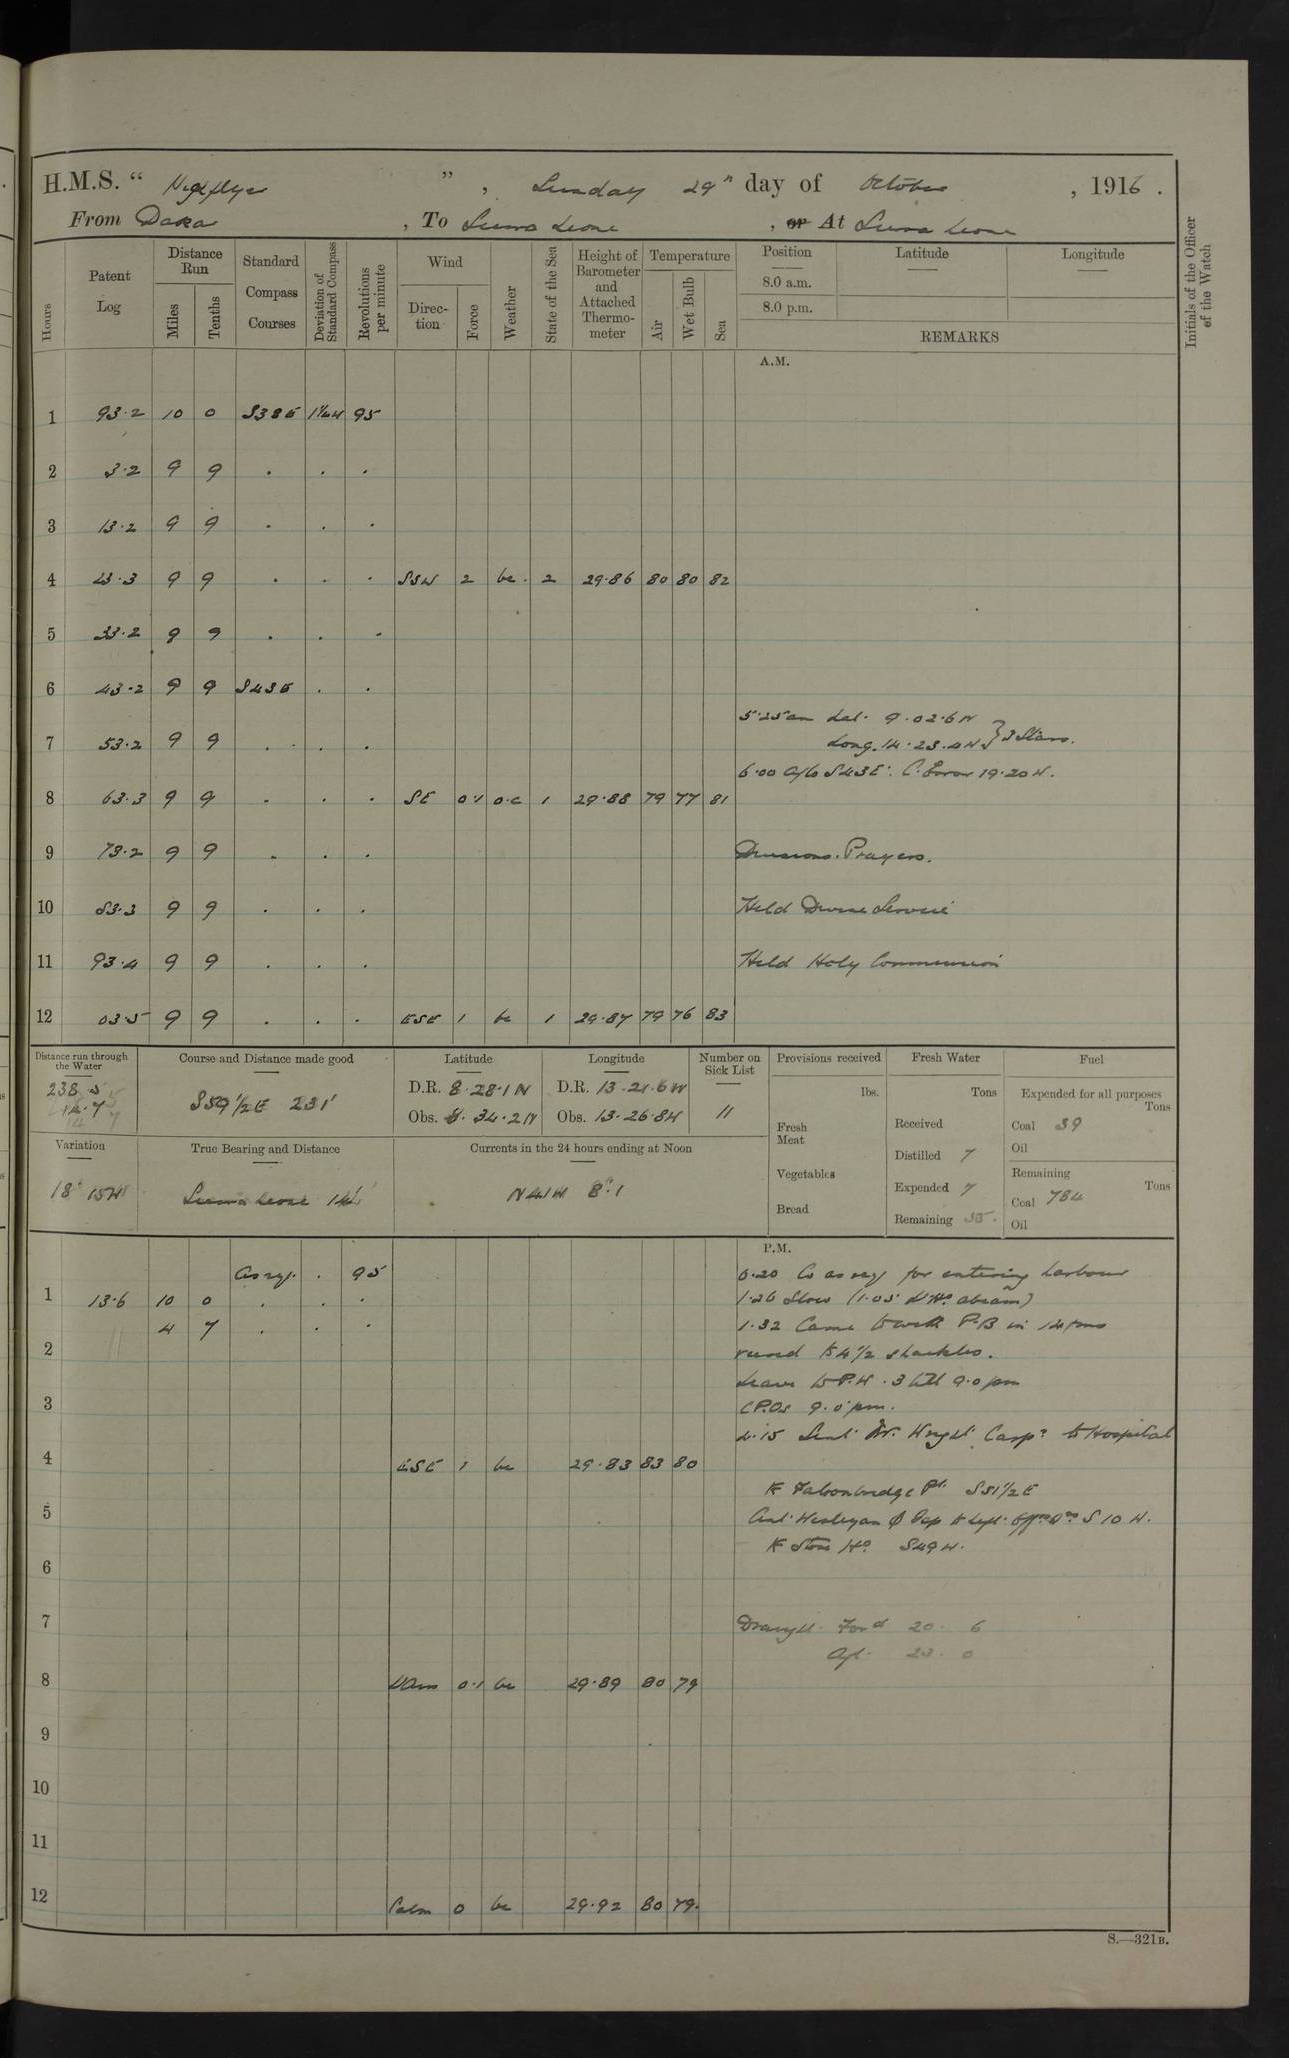 H.M.S. " Highflyer ", Sunday 29th day of October, 1916.
From Dakar, To Sierra Leone, or At Sierra Leone
Hours
Patent Log
Distance Run
Miles
Tenths
Standard Compass Courses
Deviation of Standard Compass
Revolutions per minute
Wind
Direction
Force
Weather
State of the Sea
Height of Barometer and Attached Thermometer
Temperature
Air
Wet Bulb
Sea
Position
Latitude
Longitude
8.0 a.m.
8.0 p.m.
REMARKS
Initials of the Officer of the Watch
A.M.
1 93.2 10 0 S38E 95
2 3.2 9 9 . . .
3 13.2 9 9 . . .
4 23.3 9 9 . . . SSW 2 bc. 2 29.86 80 80 82
5 33.2 9 9 . . .
6 43.2 9 9 S43E . .
5.25am Lat. 9.02.6N
7 53.2 9 9 . . .
Long. 14.23.4W } 3 Stars.
6.00 A/c S43E. C. Error 19.20W.
8 63.3 9 9 . . . SE 0.1 o.c 1 29.88 79 77 81
9 73.2 9 9 . . . Divisions. Prayers.
10 83.3 9 9 . . . Held Divine Service
11 93.4 9 9 . . . Held Holy Communion
12 03.5 9 9 . . . ESE 1 bc 1 29.87 79 76 83
Distance run through the Water
238.5
14.7
Course and Distance made good
S59½E 231'
Latitude
D.R. 8.28.1N
Obs. 8.34.2N
Longitude
D.R. 13.21.6W
Obs. 13.26.8W
Number on Sick List
11
Provisions received
lbs.
Fresh Meat
Vegetables
Bread
Fresh Water
Tons
Received
Distilled 7
Expended 7
Remaining 35.
Fuel
Expended for all purposes
Tons
Coal 39
Oil
Remaining
Tons
Coal 784
Oil
Variation
18° 15W
True Bearing and Distance
Sierra Leone
Currents in the 24 hours ending at Noon
8.1
P.M.
As req. . 95
0.20 Co as req for entering harbour
1 13.6 10 0 . . .
1.26 Slow (1.05 Lt Ho abeam)
4 7 . . .
1.32 Came to with P.B in 14 fms
2
veered to 4½ shackles.
Leave to P.W. 3 till 9.0 pm
3
CPOs 9.0 pm.
4.15 Sent Mr. Wright Carpr to Hospital
4 ESE 1 bc 29.83 83 80
Falconbridge Pt. S51½E
5
S10W.
Ho. S49W.
6
7
Draught Ford 20. 6
Aft. 23. 0
8 0.1 bc 29.89 80 79
9
10
11
12 Calm 0 bc 29.92 80 79.
S.—321B.